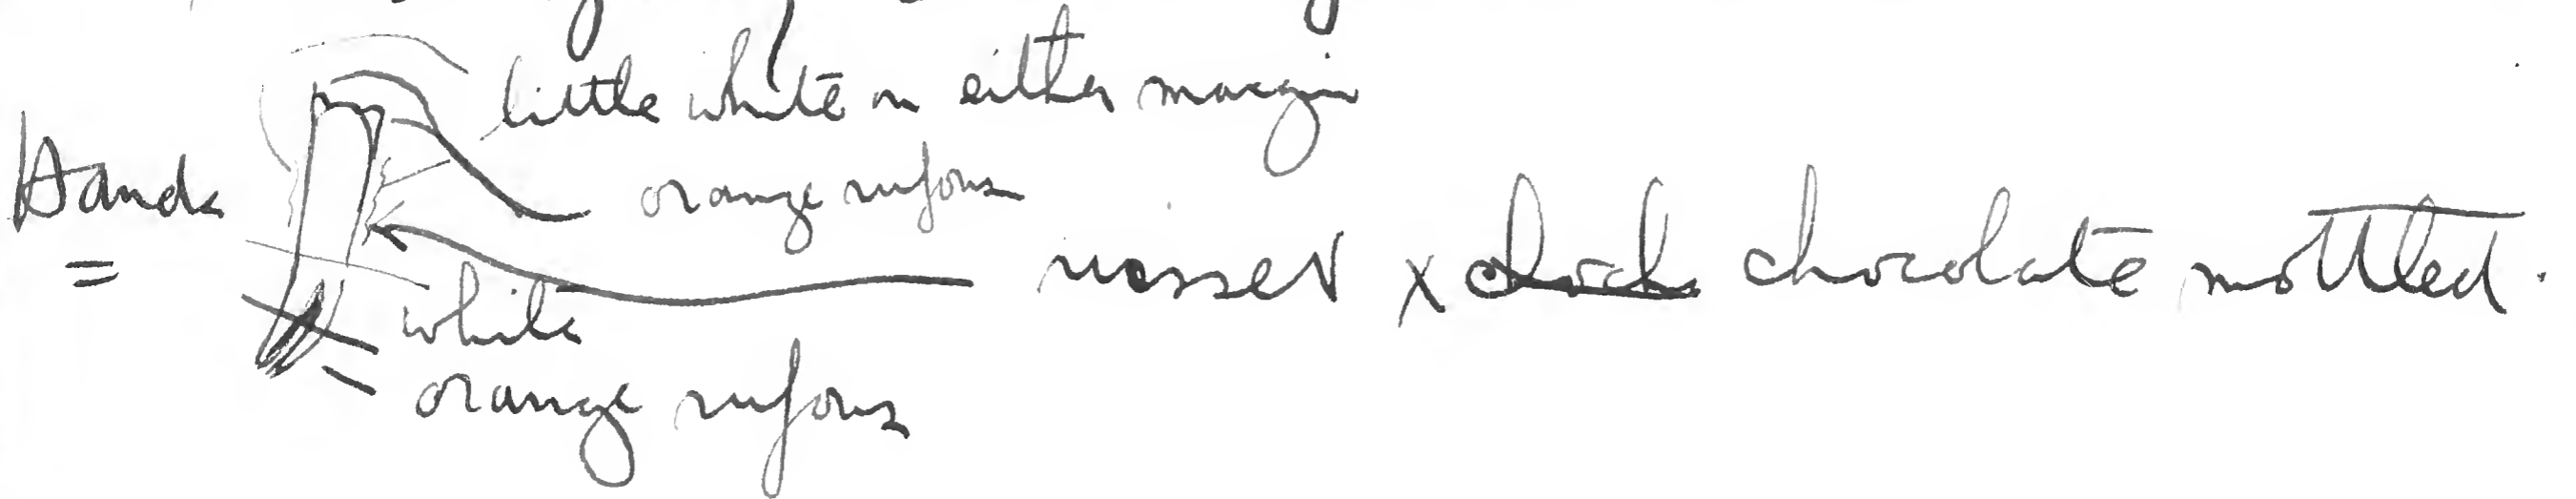 little white on either margin
Hands
orange rufous
russet x choch chocolate mottled.
=
white
orange rufous